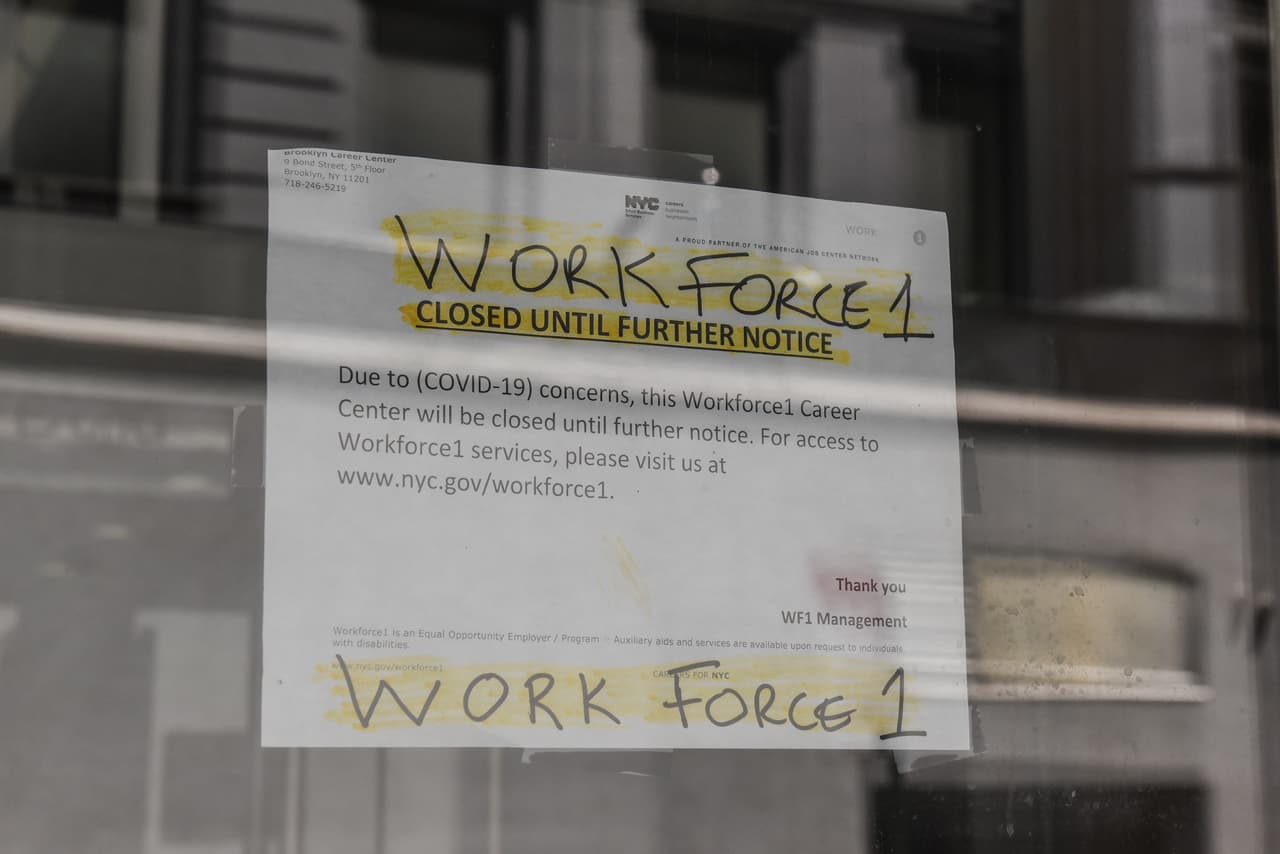 Brooklyn Career Center
9 Bond Street, 5th Floor
Brooklyn, NY 11201
718-246-5219
NYC
Small Business
Services
careers
businesses
neighborhoods
WORK
1
A PROUD PARTNER OF THE AMERICAN JOB CENTER NETWORK
WORKFORCE 1
CLOSED UNTIL FURTHER NOTICE
Due to (COVID-19) concerns, this Workforce1 Career
Center will be closed until further notice. For access to
Workforce1 services, please visit us at
www.nyc.gov/workforce1.
Thank you
WF1 Management
Workforce1 is an Equal Opportunity Employer / Program Auxiliary aids and services are available upon request to individuals
with disabilities.
www.nyc.gov/workforce1
CAREERS FOR NYC
WORK FORCE 1